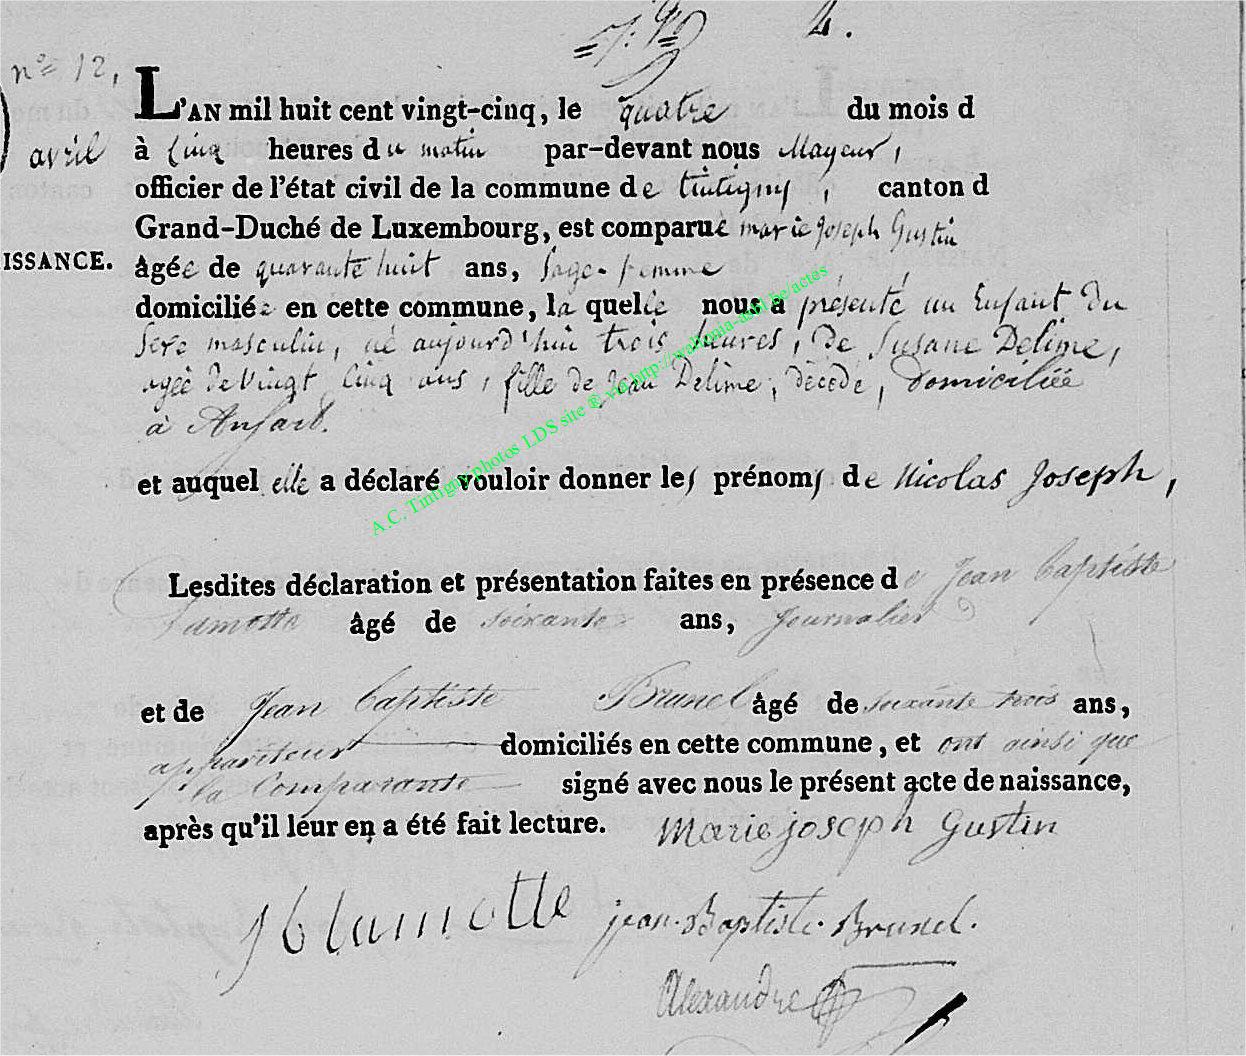 4.
nº 12,
L'AN mil huit cent vingt-cinq, le quatre du mois d
avril à cinq heures du matin par-devant nous Mayeur,
officier de l'état civil de la commune de tintigny, canton d
Grand-Duché de Luxembourg, est comparue marie joseph Gustin
ISSANCE.
âgée de quarante huit ans, sage-femme
domiciliée en cette commune, la quelle nous a présenté un Enfant du
sexe masculin, né aujourd'hui trois heures, de Susane Delime,
agée de vingt cinq ans, fille de jean Delime, décédé, domiciliée
à Ansart.
et auquel elle a déclaré vouloir donner les prénoms de Nicolas Joseph,
Lesdites déclaration et présentation faites en présence de Jean baptiste
Lamotte âgé de soixante ans, journalier
et de Jean baptiste Brunel âgé de soixante trois ans,
appariteur domiciliés en cette commune, et ont ainsi que
la Comparante signé avec nous le présent acte de naissance,
après qu'il leur en a été fait lecture. Marie joseph Gustin
JBlamotte jean-Baptiste Brunel.
Alexandre
A.C. Tintigny photos LDS site ® via http://wallonia-asbl.be/actes